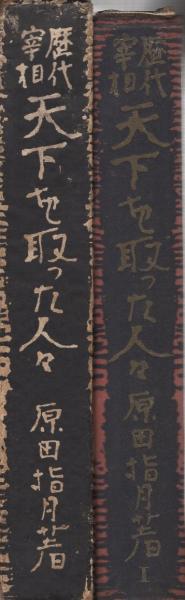 歴代
宰相
天下を取った人々
原田指月著
歴代
宰相
天下を取った人々
原田指月著
I